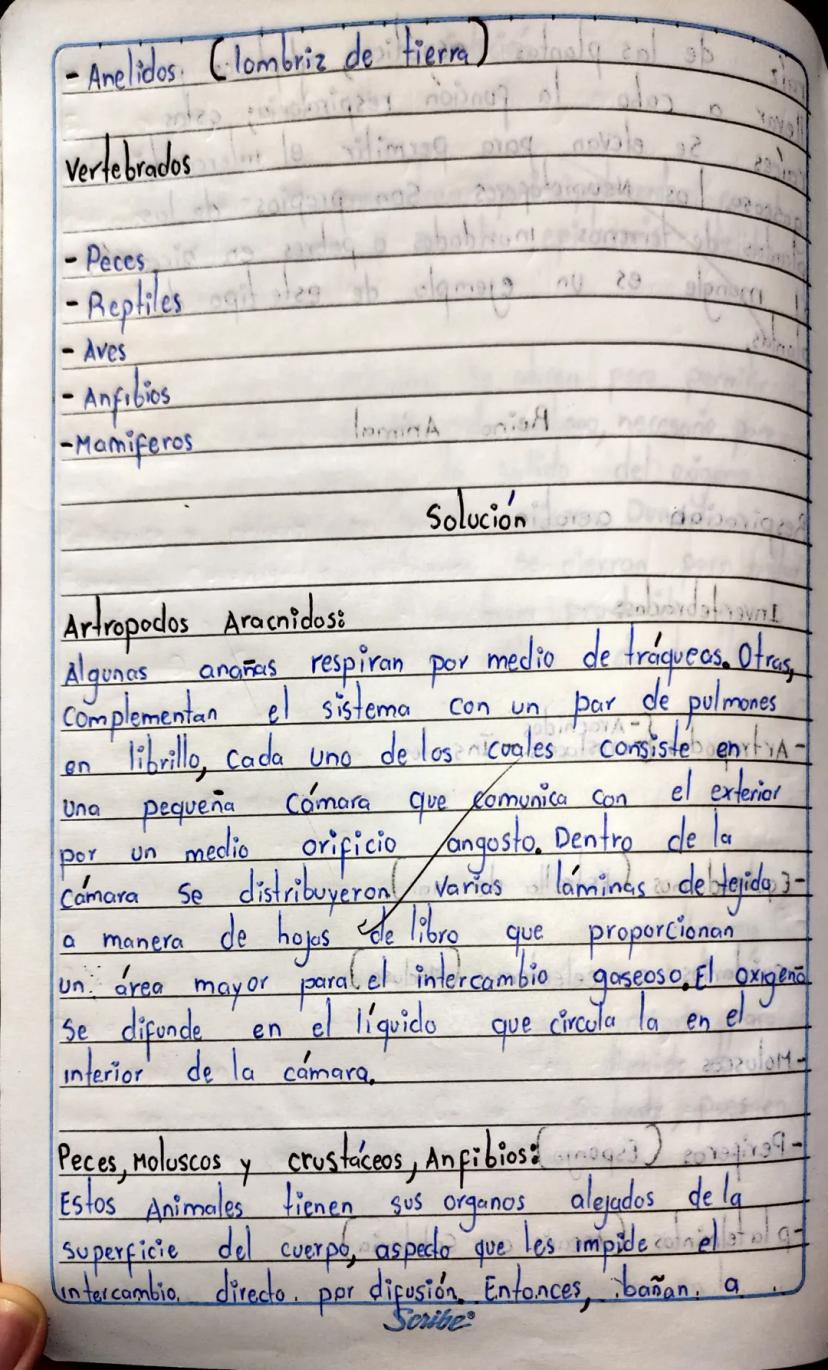 - Anelidos (lombriz de tierra)
Vertebrados
- Peces
- Reptiles
- Aves
- Anfibios
- Mamiferos
Solución
Artropodos Aracnidos:
Algunas anañas respiran por medio de tráqueas. Otras,
complementan el sistema con un par de pulmones
en librillo, cada uno de los cuales consiste en
una pequeña cámara que comunica con el exterior
por un medio orificio angosto. Dentro de la
cámara se distribuyeron varias láminas de tejido
a manera de hojas de libro que proporcionan
un área mayor para el intercambio gaseoso. El oxigeno
se difunde en el líquido que circula la en el
interior de la cámara.
Peces, Moluscos y crustáceos, Anfibios:
Estos Animales tienen sus organos alejados de la
superficie del cuerpo, aspecto que les impide el
intercambio directo por difusión. Entonces, bañan a
Scribe